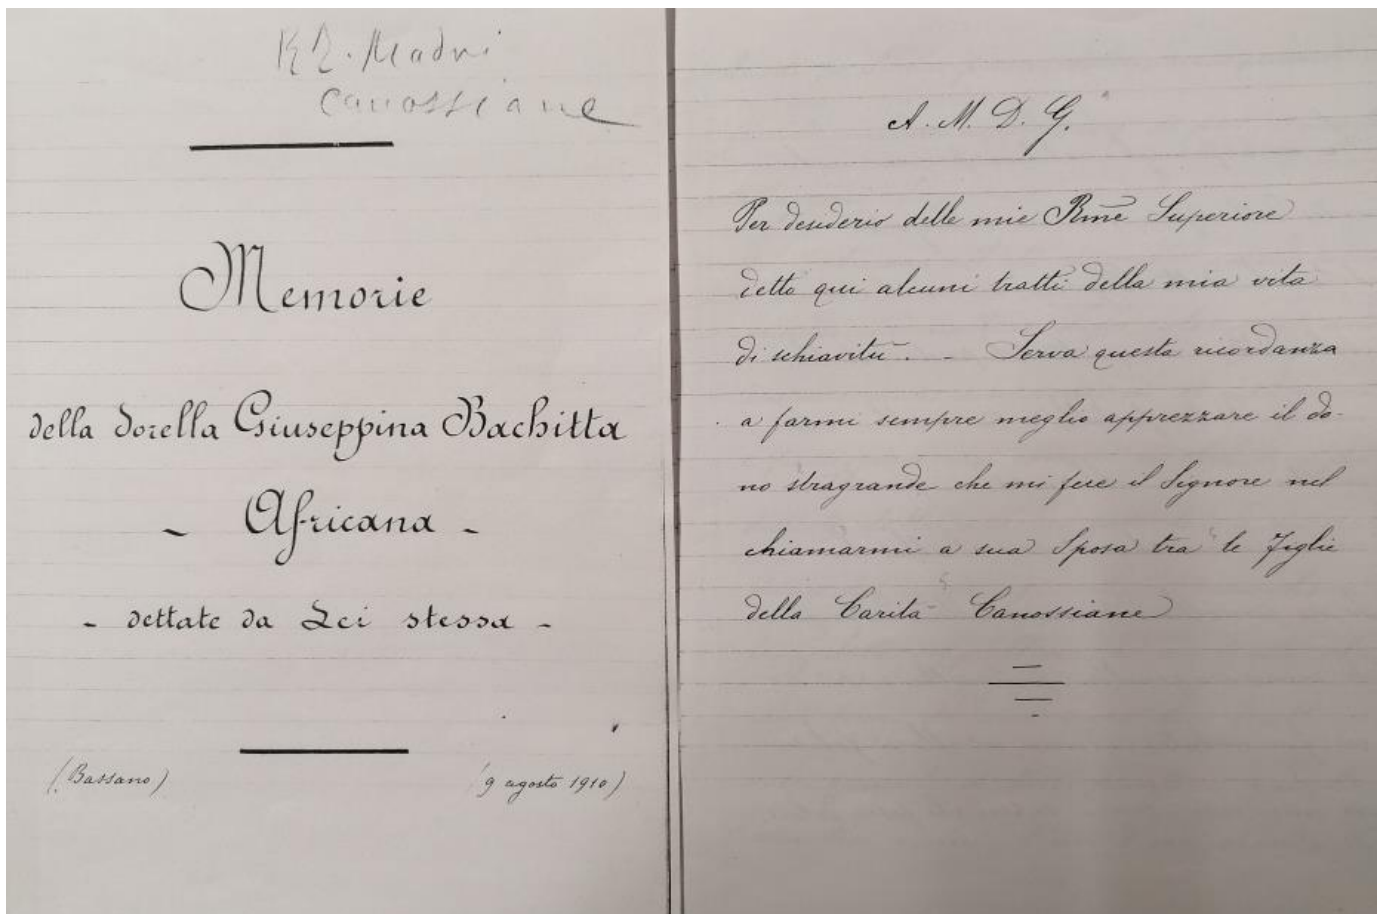 RR. Madri
Canossiane
Memorie
della Sorella Giuseppina Bachitta
- Africana -
- dettate da Lei stessa -
(Bassano)
(9 agosto 1910)
A. M. D. G.
Per desiderio delle mie Rme Superiore
detto qui alcuni tratti della mia vita
di schiavitù. - Serva questa ricordanza
a farmi sempre meglio apprezzare il do-
no stragrande che mi fece il Signore nel
chiamarmi a sua Sposa tra le Figlie
della Carità Canossiane